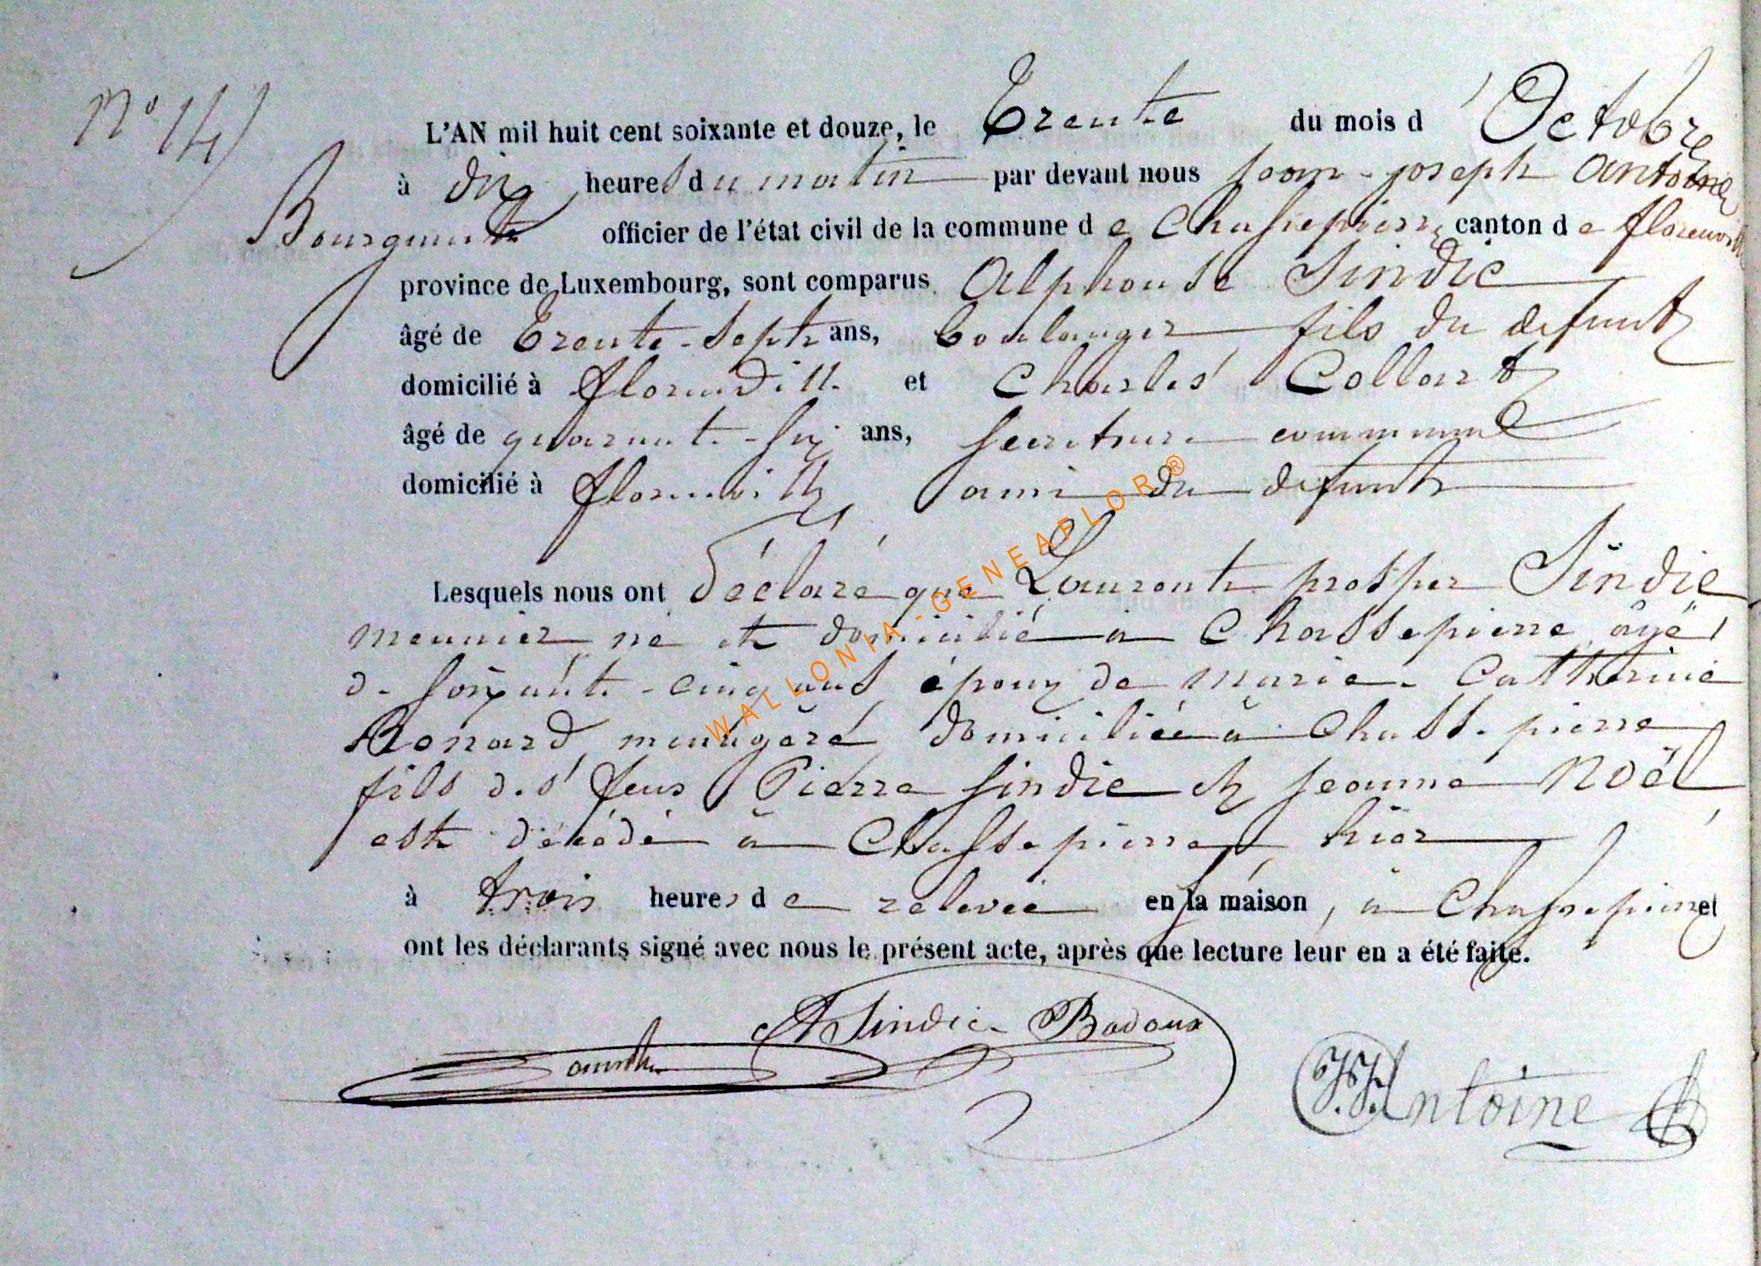 N° 14
L'AN mil huit cent soixante et douze, le Trente du mois d'Octobre
à dix heures du matin par devant nous Jean-joseph Antoine
Bourgmestre officier de l'état civil de la commune de Chassepierre canton de florenville
province de Luxembourg, sont comparus Alphonse Sindic
âgé de Trente-sept ans, boulanger fils du defunt
domicilié à florenville et Charles Collart
âgé de quarante-six ans, secretaire communal
domicilié à florenville ami du defunt
Lesquels nous ont déclaré que Laurent prosper Sindic
meunier né et domicilié a Chassepierre âgé
de soixante-cinq ans époux de marie-Catherine
Renard menagère domiciliée à Chassepierre
fils des feus Pierre Sindic et jeanne Noël
est décédé à Chassepierre hier
à trois heures de relevée en sa maison, à Chassepierre et
ont les déclarants signé avec nous le présent acte, après que lecture leur en a été faite.
A Sindic-Badoux
J.J. Antoine
WALLONIA-GENEAFLOR®